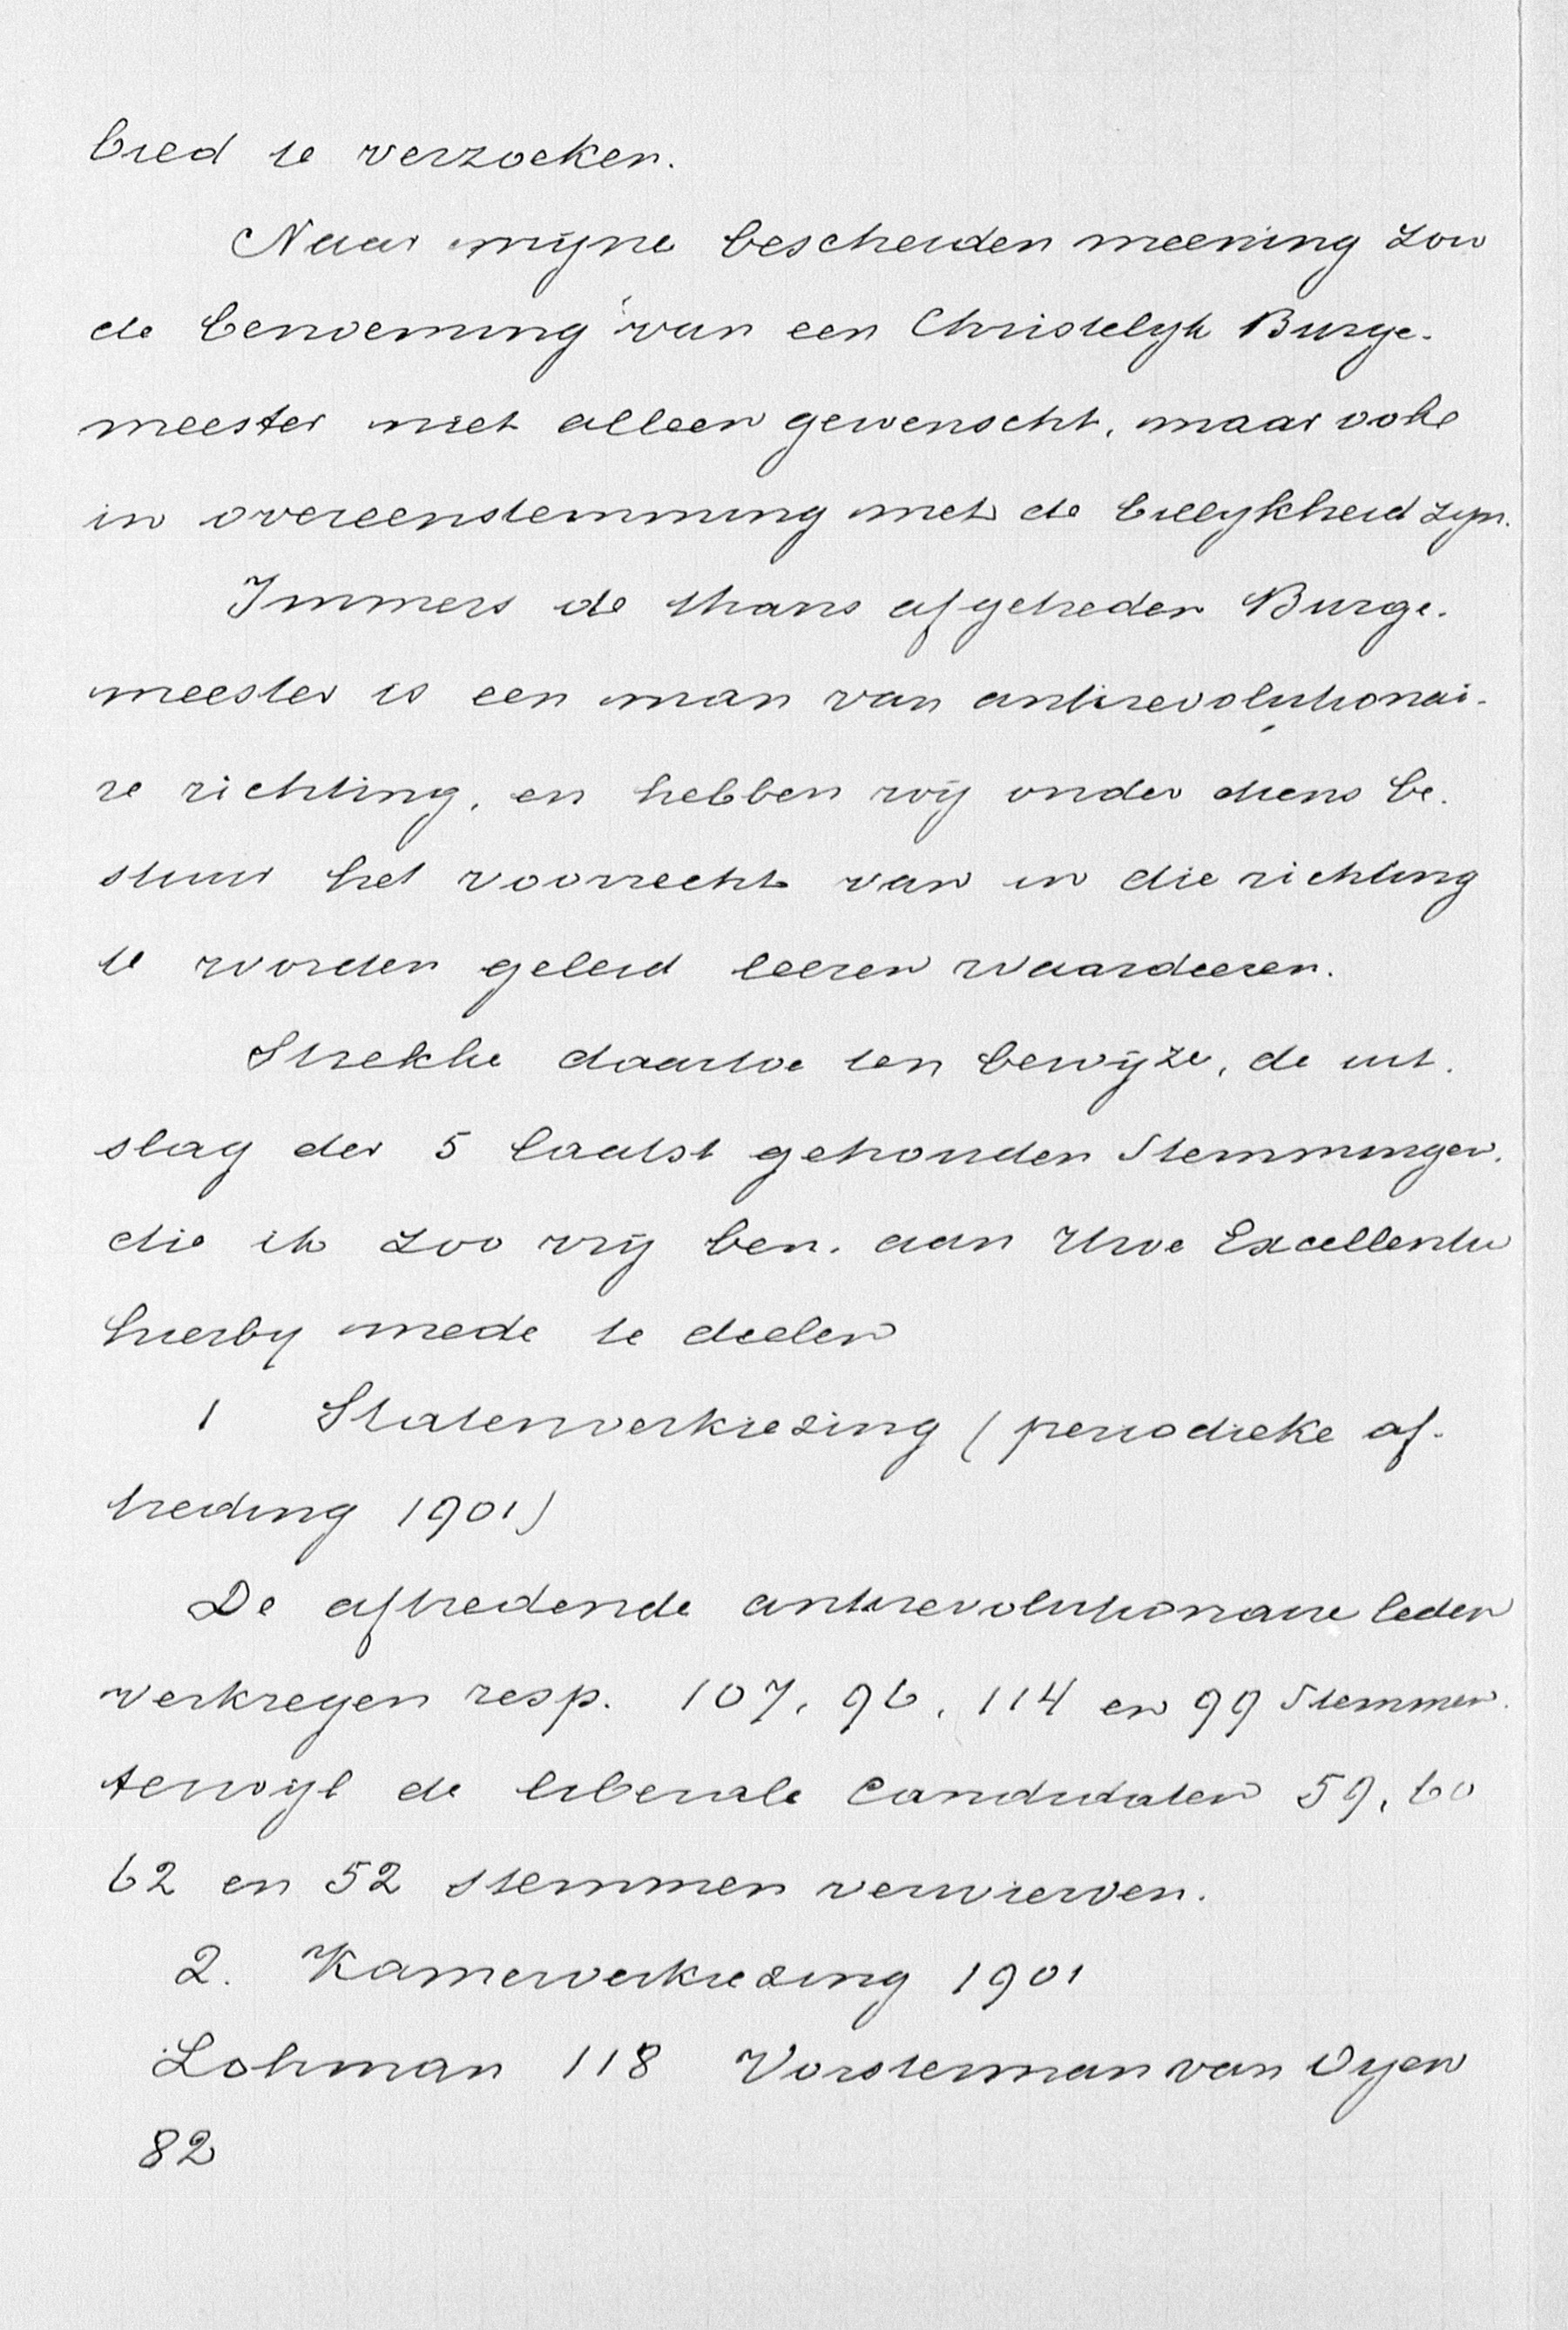 bied te verzoeken.
Naar mijne bescheiden meening zou
de benoeming van een Christelijk Burge-
meester niet alleen gewenscht, maar ook
in overeenstemming met de billijkheid zijn.
Immers de thans afgetreden Burge-
meester is een man van antirevolutionai-
re richting, en hebben wij onder diens be-
stuur het voorrecht van in die richting
te worden geleid leeren waardeeren.
Strekke daartoe ten bewijze, de uit-
slag der 5 laatst gehouden Stemmingen,
die ik zoo vrij ben, aan Uwe Excellentie
hierby mede te deelen
1 Statenverkiezing (periodieke af-
treding 1901)
De aftredende antirevolutionaire leden
verkregen resp. 107, 96, 114 en 99 Stemmen.
terwijl de liberale Candidaten 59, 60
62 en 52 stemmen verwierven.
2. Kamerverkiezing 1901
Lohman 118 Vorsterman van Oyen
82